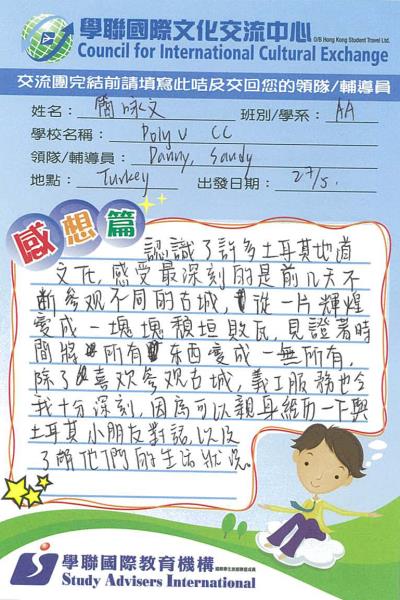 學聯國際文化交流中心 O/B Hong Kong Student Travel Ltd.
Council for International Cultural Exchange
交流團完結前請填寫此咭及交回您的領隊/輔導員
姓名：簡咏文 班別/學系：AA
學校名稱：Poly U CC
領隊/輔導員：Danny, Sandy
地點：Turkey 出發日期：27/5.
感想篇
認識了許多土耳其地道
文化,感受最深刻的是前几天不
斷參观不同的古城,從一片輝煌
變成一塊塊頹垣敗瓦,見證著時
間將所有東西變成一無所有,
除了喜欢參观古城,義工服務也令
我十分深刻,因為可以親身經历一下與
土耳其小朋友對話,以及
了解他們的生活狀况。
學聯國際教育機構
Study Advisers International